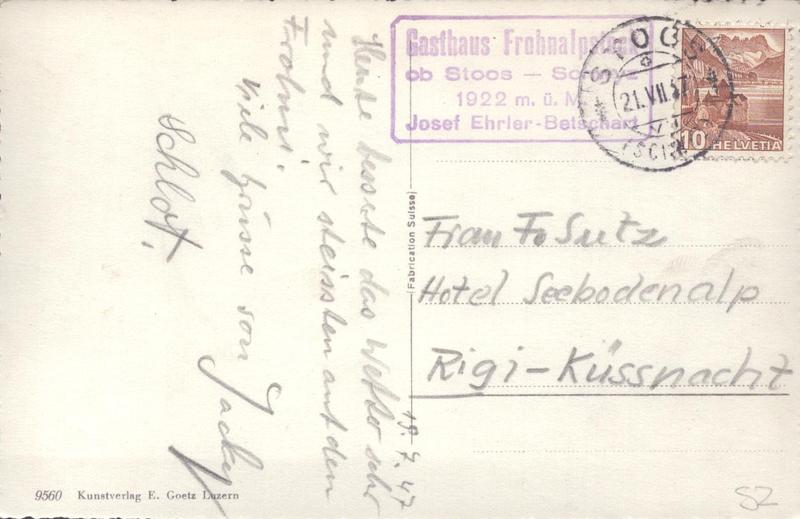 Gasthaus Frohnalpstock
ob Stoos — Schwyz
1922 m. ü. M.
Josef Ehrler-Betschart
STOOS
21.VII.47
(SCHWYZ)
10 HELVETIA
19.7.47
Heute besserte das Wetter sehr
und wir steissten auf den
Frohni.
Viele Grüsse von Jacky
Schlof.
(Fabrication Suisse)
Frau Fr Sutz
Hotel Seebodenalp
Rigi-Küssnacht
9560 Kunstverlag E. Goetz Luzern
SZ